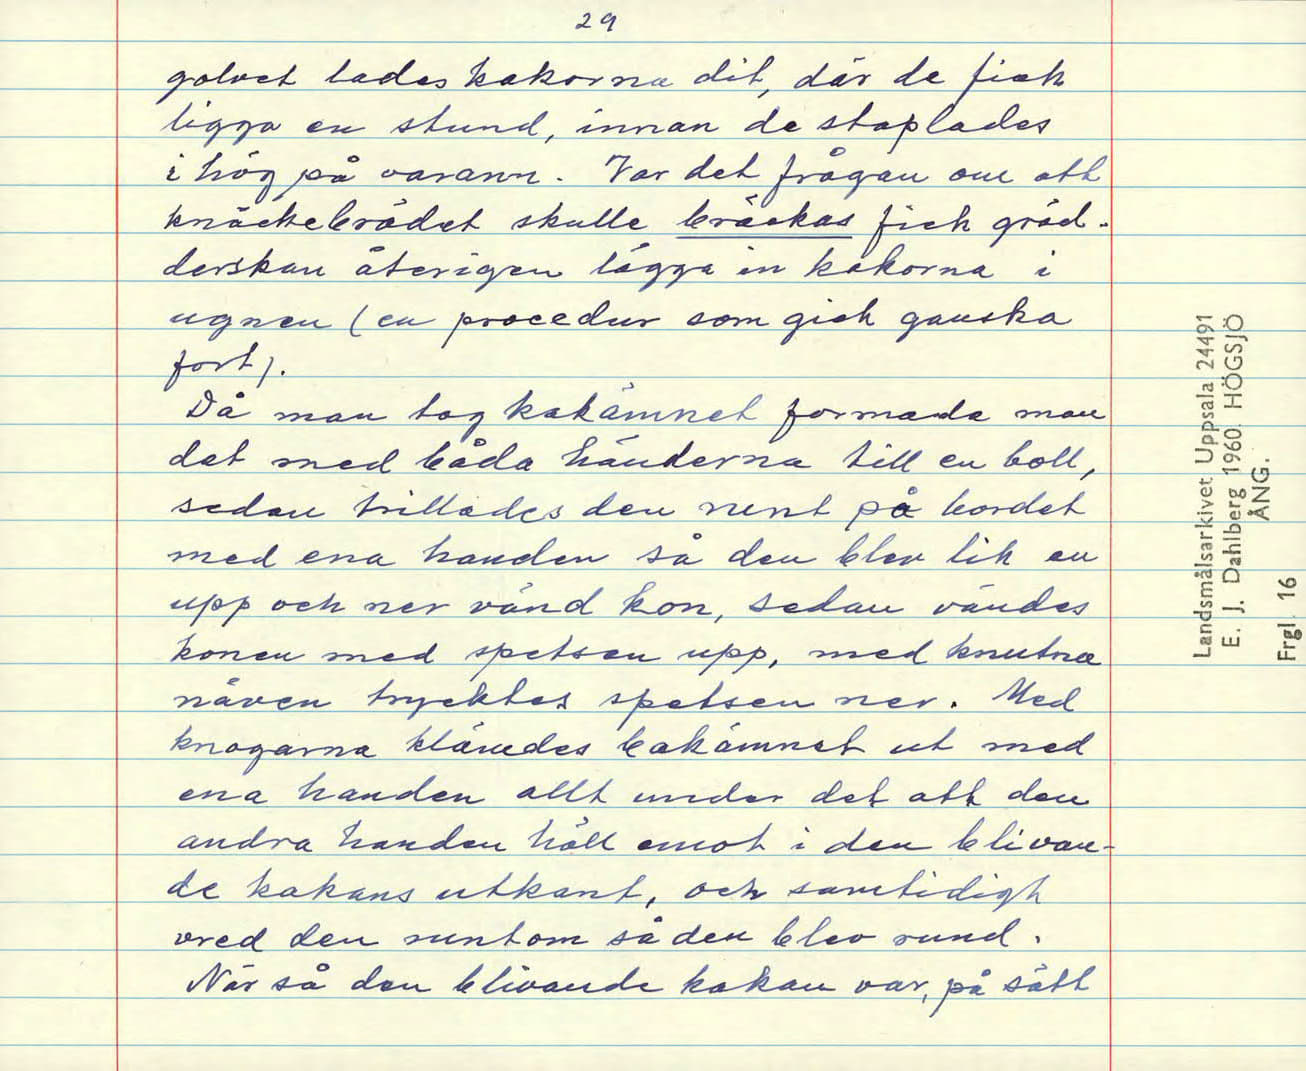 29
golvet lades kakorna dit, där de fick
ligga en stund, innan de staplades
i hög på varann. Var det frågan om att
knäckebrödet skulle bräckas fick gräd-
derskan återigen lägga in kakorna i
ugnen (en procedur som gick ganska
fort).
Då man tog kakämnet formade man
det med båda händerna till en boll,
sedan trillades den runt på bordet
med ena handen så den blev lik en
upp och ner vänd kon, sedan vändes
konen med spetsen upp, med knutna
näven trycktes spetsen ner. Med
knogarna klämdes bakämnet ut med
ena handen allt under det att den
andra handen höll emot i den blivan-
de kakans utkant, och samtidigt
vred den runtom så den blev rund.
När så den blivande kakan var, på sätt
Landsmålsarkivet Uppsala 24491
E. J. Dahlberg 1960. HÖGSJÖ
ÅNG.
Frgl. 16